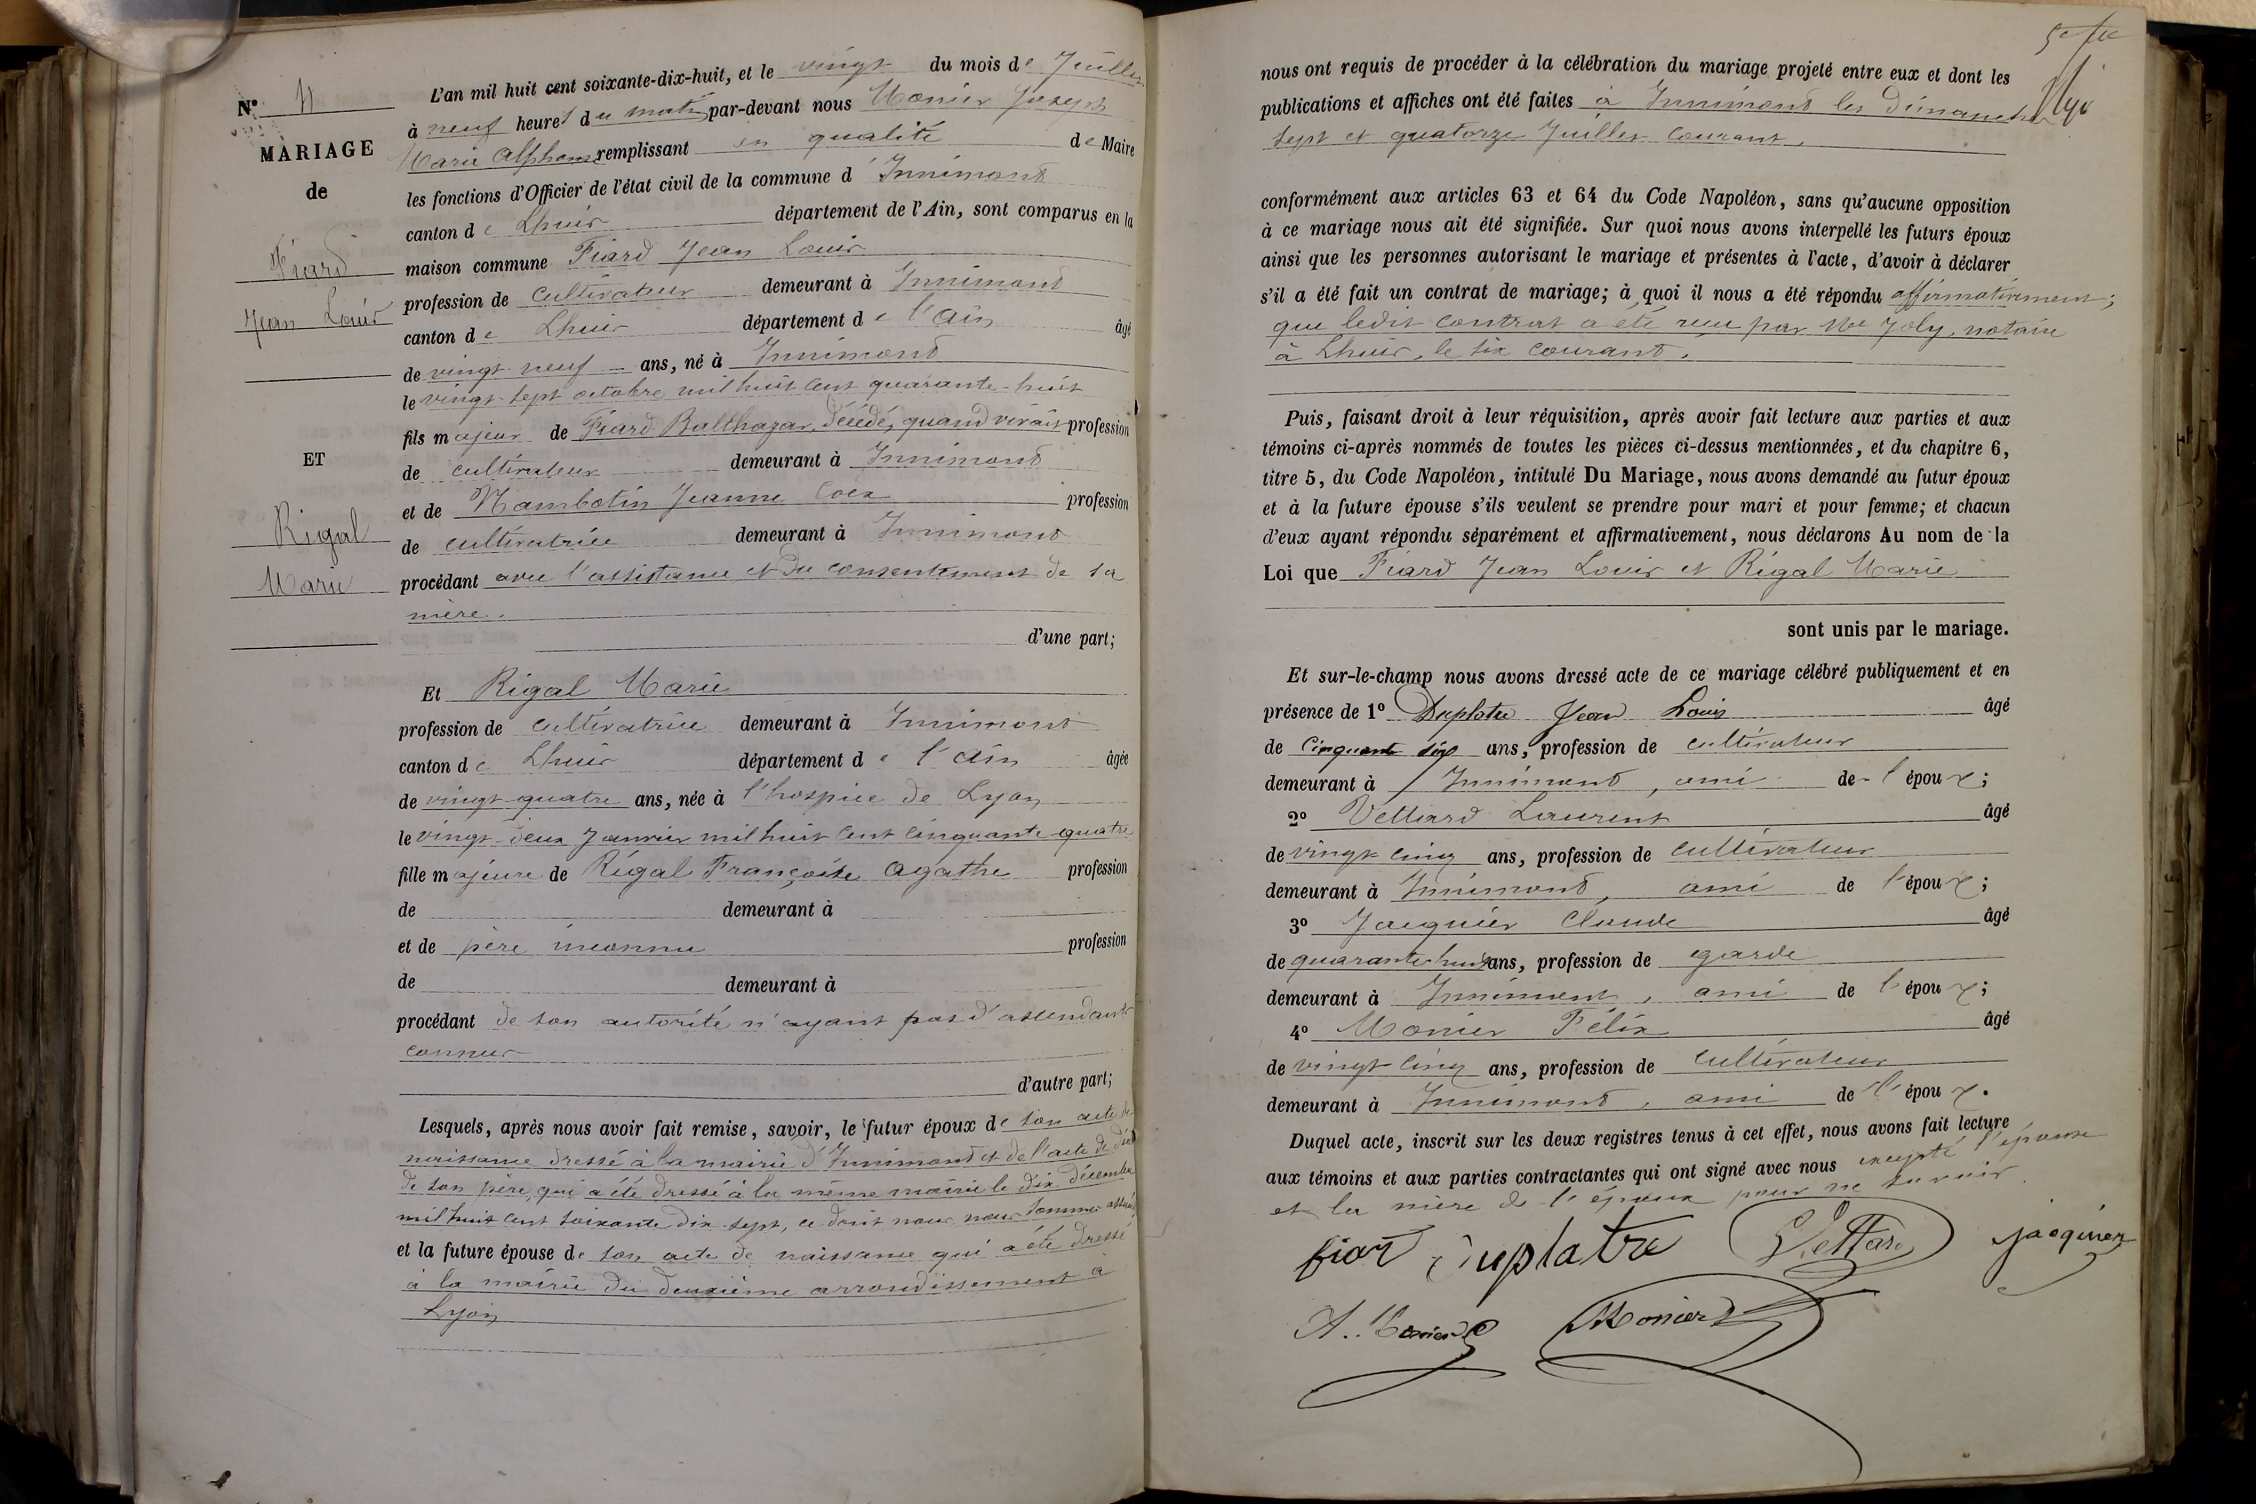 N° 4
MARIAGE
de
Fiard
Jean Louis
ET
Rigal
Marie
L'an mil huit cent soixante-dix-huit, et le vingt du mois de Juillet
à neuf heures du matin par-devant nous Monier Joseph
Marie Alphonse remplissant en qualité de Maire
les fonctions d'Officier de l'état civil de la commune d'Innimond
canton de Lhuis département de l'Ain, sont comparus en la
maison commune Fiard Jean Louis
profession de cultivateur demeurant à Innimond
canton de Lhuis département de l'Ain âgé
de vingt neuf ans, né à Innimond
le vingt-sept octobre mil huit cent quarante-huit
fils majeur de Fiard Balthazar, décédé, quand vivait profession
de cultivateur demeurant à Innimond
et de Nambotin Jeanne profession
de cultivatrice demeurant à Innimond
procédant avec l'assistance et du consentement de sa
mère.
d'une part;
Et Rigal Marie
profession de cultivatrice demeurant à Innimont
canton de Lhuis département de l'Ain âgée
de vingt-quatre ans, née à l'hospice de Lyon
le vingt-deux Janvier mil huit cent cinquante-quatre
fille majeure de Rigal Françoise Agathe profession
de demeurant à
et de père inconnu profession
de demeurant à
procédant de son autorité n'ayant pas d'ascendants
connus
d'autre part;
Lesquels, après nous avoir fait remise, savoir, le futur époux de son acte de
naissance dressé à la mairie d'Innimond et de l'acte de décès
de son père, qui a été dressé à la même mairie le dix décembre
mil huit cent soixante dix-sept, ce dont nous nous sommes assuré
et la future épouse de son acte de naissance qui a été dressé
à la mairie du deuxième arrondissement à
Lyon
nous ont requis de procéder à la célébration du mariage projeté entre eux et dont les
publications et affiches ont été faites à Innimond les dimanches
sept et quatorze Juillet courant.
conformément aux articles 63 et 64 du Code Napoléon, sans qu'aucune opposition
à ce mariage nous ait été signifiée. Sur quoi nous avons interpellé les futurs époux
ainsi que les personnes autorisant le mariage et présentes à l'acte, d'avoir à déclarer
s'il a été fait un contrat de mariage; à quoi il nous a été répondu affirmativement;
que ledit contrat a été reçu par Me Joly, notaire
à Lhuis, le six courant.
Puis, faisant droit à leur réquisition, après avoir fait lecture aux parties et aux
témoins ci-après nommés de toutes les pièces ci-dessus mentionnées, et du chapitre 6,
titre 5, du Code Napoléon, intitulé Du Mariage, nous avons demandé au futur époux
et à la future épouse s'ils veulent se prendre pour mari et pour femme; et chacun
d'eux ayant répondu séparément et affirmativement, nous déclarons Au nom de la
Loi que Fiard Jean Louis et Rigal Marie
sont unis par le mariage.
Et sur-le-champ nous avons dressé acte de ce mariage célébré publiquement et en
présence de 1° Duplatre Jean Louis âgé
de Cinquante six ans, profession de cultivateur
demeurant à Innimond, ami de l'époux;
2° Vettard Laurent âgé
de vingt-cinq ans, profession de cultivateur
demeurant à Innimond, ami de l'époux;
3° Jacquier Claude âgé
de quarante-huit ans, profession de garde
demeurant à Innimont, ami de l'époux;
4° Monier Félix âgé
de vingt-cinq ans, profession de cultivateur
demeurant à Innimond, ami de l'époux.
Duquel acte, inscrit sur les deux registres tenus à cet effet, nous avons fait lecture
aux témoins et aux parties contractantes qui ont signé avec nous excepté l'épouse
et la mère de l'époux pour ne savoir.
fiard duplatre Vettard jacquier
A. Monier Monier